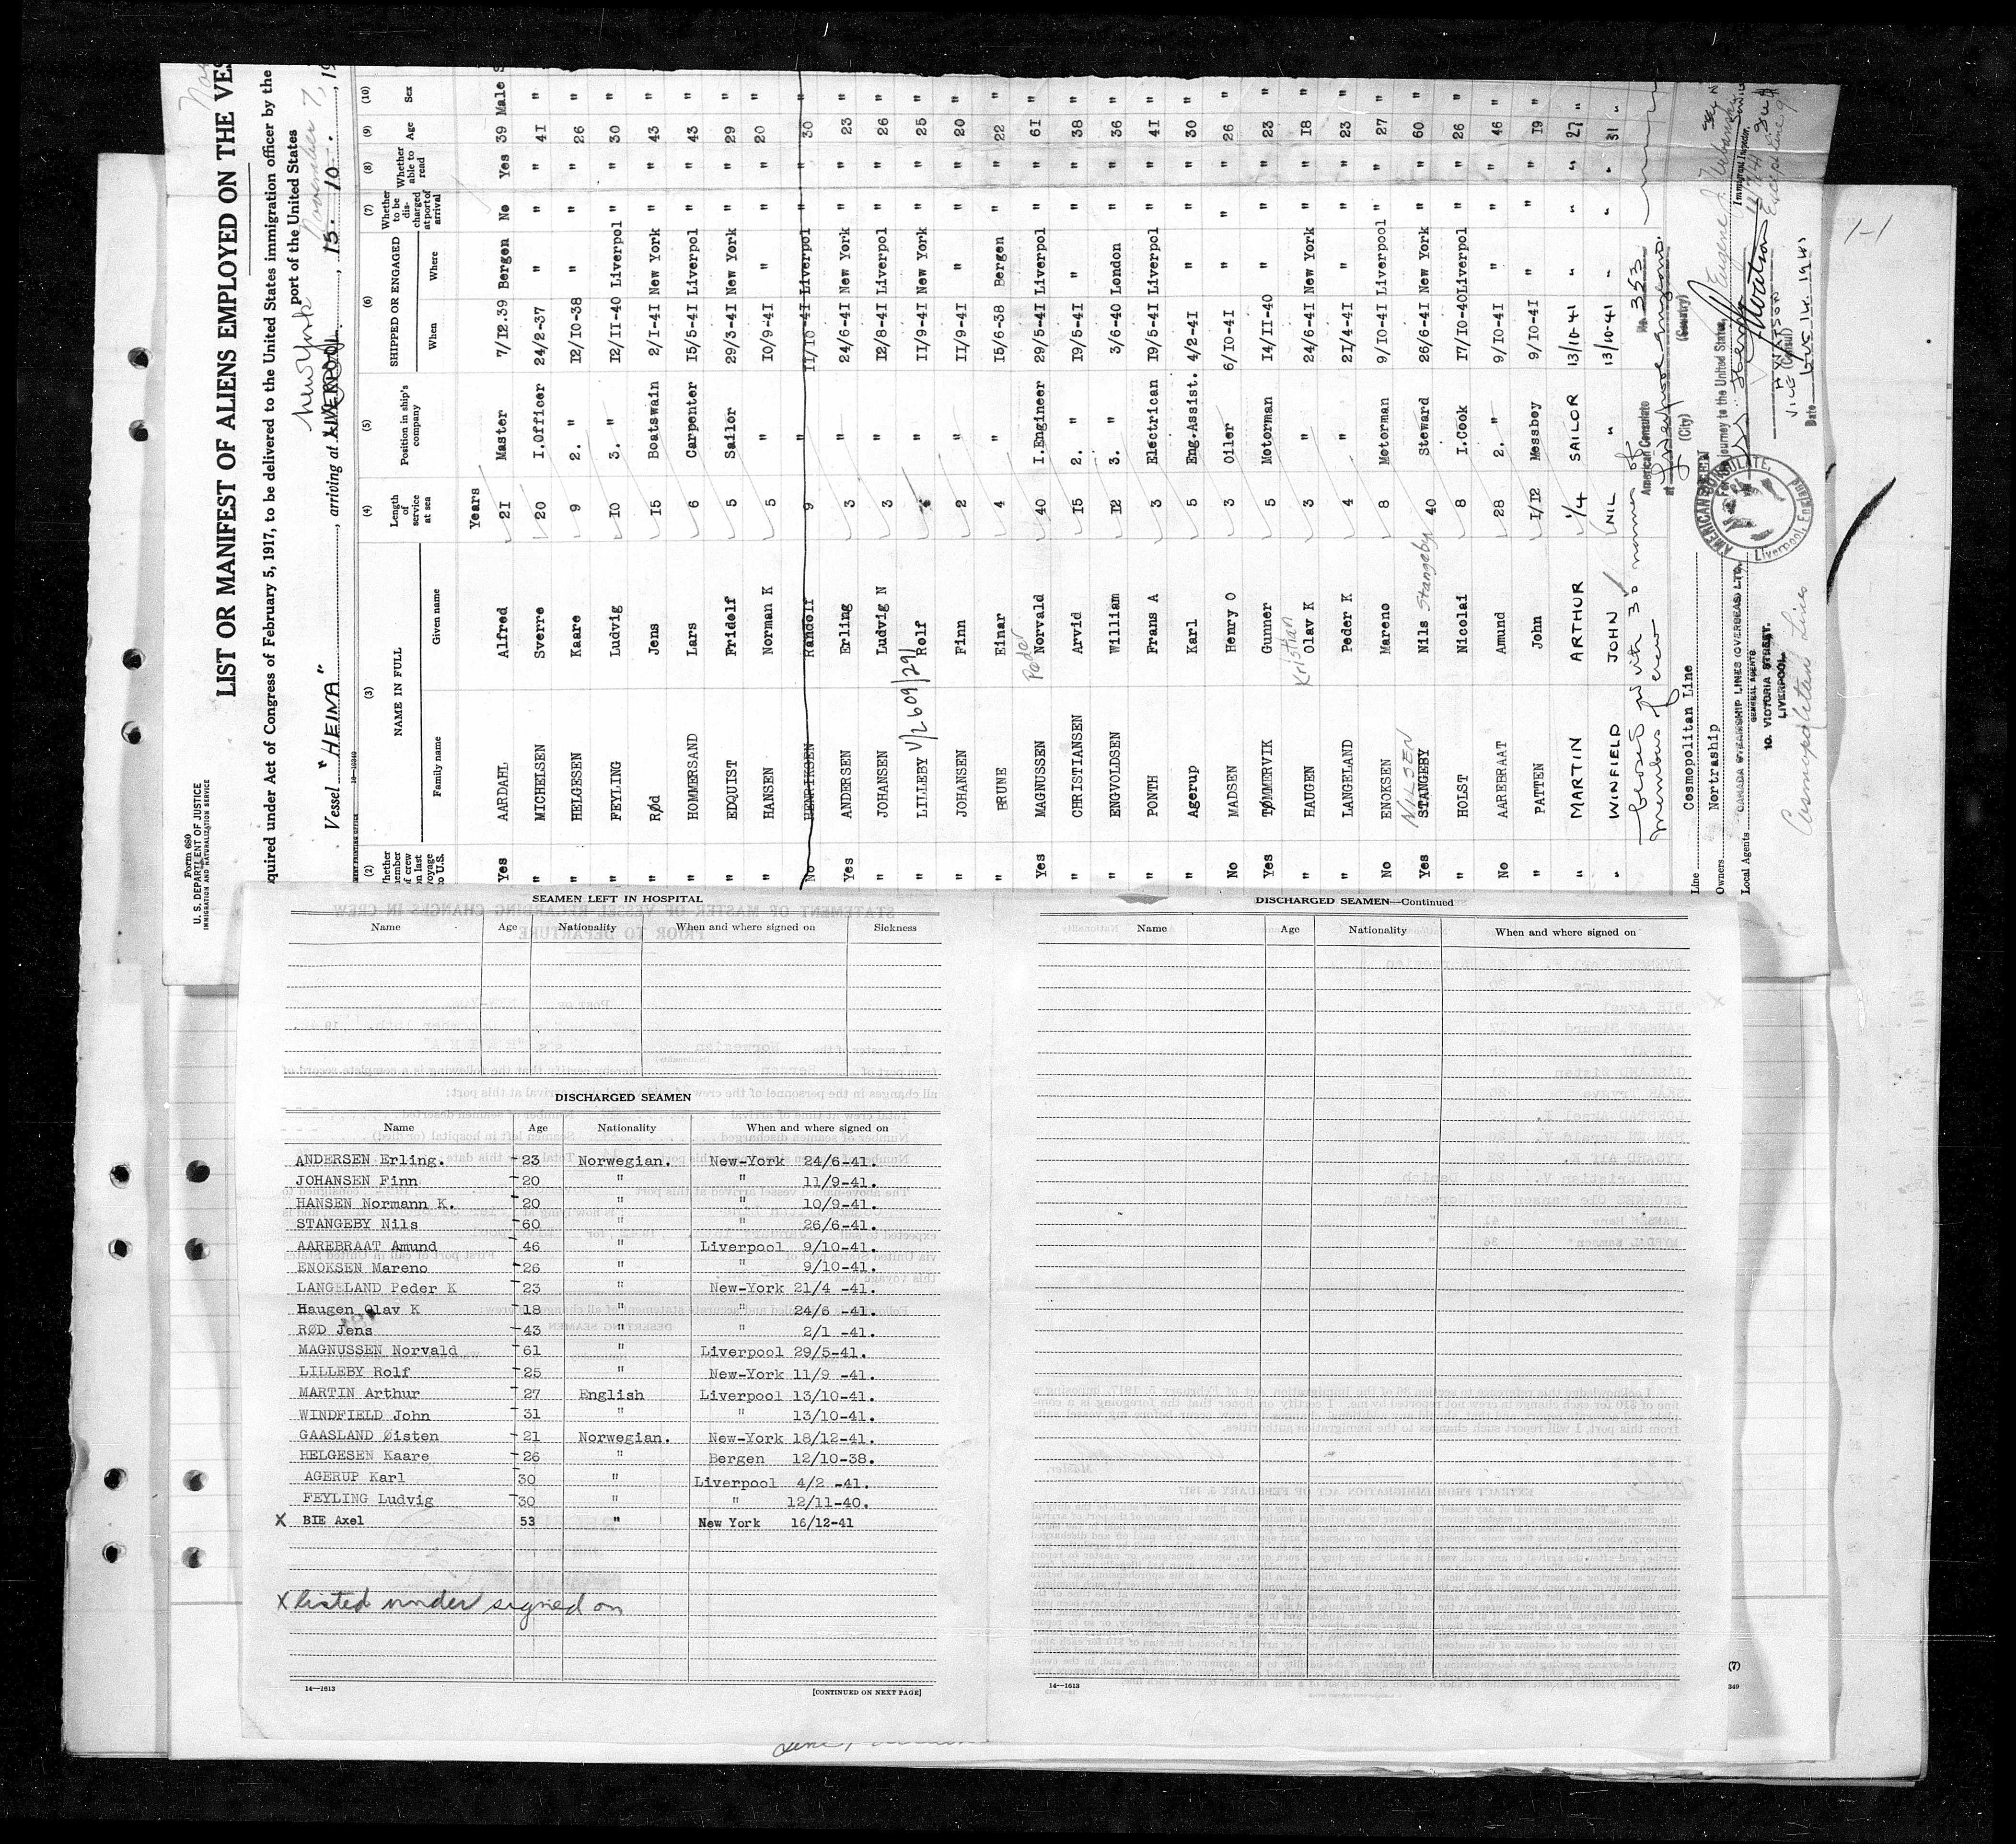 Form 680
U. S. DEPARTMENT OF JUSTICE
IMMIGRATION AND NATURALIZATION SERVICE
LIST OR MANIFEST OF ALIENS EMPLOYED ON THE VES
quired under Act of Congress of February 5, 1917, to be delivered to the United States immigration officer by the
port of the United States
New York November 7,
Vessel "HEINA" , arriving at LIVERPOOL. , 15. 10. , 19
(2) (3) (4) (5) (6) (7) (8) (9) (10)
NAME IN FULL SHIPPED OR ENGAGED
Whether member of crew on last voyage to U.S. Family name Given name Length of service at sea Position in ship's company When Where Whether to be discharged at port of arrival Whether able to read Age Sex
Years
Yes AARDAHL Alfred 21 Master 7/12.39 Bergen No Yes 39 Male
" MICHELSEN Sverre 20 I.Officer 24/2-37 " " " 41 "
" HELGESEN Kaare 9 2. " 12/10-38 " " " 26 "
" FEYLING Ludvig 10 3. " 12/11-40 Liverpol " " 30 "
" Rød Jens 15 Boatswain 2/1-41 New York " " 43 "
" HOMMERSAND Lars 6 Carpenter 15/5-41 Liverpol " " 43 "
" EDQUIST Fridolf 5 Sailor 29/3-41 New York " " 29 "
" HANSEN Norman K 5 " 10/9-41 " " " 20 "
No HENRIKSEN Randolf 9 " 11/10-41 Liverpol " " 30 "
Yes ANDERSEN Erling 3 " 24/6-41 New York " " 23 "
" JOHANSEN Ludvig N 3 " 12/8-41 Liverpol " " 26 "
" LILLEBY V/2609/291 Rolf " 11/9-41 New York " " 25 "
" JOHANSEN Finn 2 " 11/9-41 " " " 20 "
" BRUNE Einar 4 " 15/6-38 Bergen " " 22 "
Yes MAGNUSSEN Peder Norvald 40 I.Engineer 29/5-41 Liverpol " " 61 "
" CHRISTIANSEN Arvid 15 2. " 19/5-41 " " " 38 "
" ENGVOLDSEN William 12 3. " 3/6-40 London " " 36 "
" PONTH Frans A 3 Electrican 19/5-41 Liverpol " " 41 "
" Agerup Karl 5 Eng.Assist. 4/2-41 " " " 30 "
No MADSEN Henry O 3 Oiler 6/10-41 " " " 26 "
Yes TØMMERVIK Gunner 5 Motorman 14/11-40 " " " 23 "
" HAUGEN Kristian Olav K 3 " 24/6-41 New York " " 18 "
" LANGELAND Peder K 4 " 21/4-41 " " " 23 "
No ENOKSEN Mareno 8 Motorman 9/10-41 Liverpool " " 27 "
Yes NILSEN STANGEBY Nils Stangeby 40 Steward 26/6-41 New York " " 60 "
" HOLST Nicolai 8 I.Cook 17/10-40 Liverpol " " 26 "
No AAREBRAAT Amund 28 2. " 9/10-41 " " " 46 "
" PATTEN John 1/12 Messboy 9/10-41 " " " 19 "
" MARTIN ARTHUR 1/4 SAILOR 13/10-41 " " " 27 "
" WINFIELD JOHN NIL " 13/10-41 " " " 31 "
closed with 30 names of
members of crew
American Consulate No 353
at
(City) (Country)
For the journey to the United States
Line Cosmopolitan Line
Owners Nortraship
Local Agents CANADA STEAMSHIP LINES (OVERSEAS) LTD.
GENERAL AGENTS
10. VICTORIA STREET.
LIVERPOOL.
Cosmopolitan Lines
AMERICAN CONSULATE,
Liverpool, England
H. WATSON
VICE (Consul)
Date
Immigrant Inspector.
1-1
SEAMEN LEFT IN HOSPITAL
Name Age Nationality When and where signed on Sickness
DISCHARGED SEAMEN
Name Age Nationality When and where signed on
ANDERSEN Erling. 23 Norwegian. New-York 24/6-41.
JOHANSEN Finn 20 " " 11/9-41.
HANSEN Normann K. 20 " " 10/9-41.
STANGEBY Nils 60 " " 26/6-41.
AAREBRAAT Amund 46 " Liverpool 9/10-41.
ENOKSEN Mareno 26 " " 9/10-41.
LANGELAND Peder K 23 " New-York 21/4 -41.
Haugen Olav K 18 " " 24/6 -41.
RØD Jens 43 " " 2/1 -41.
MAGNUSSEN Norvald 61 " Liverpool 29/5-41.
LILLEBY Rolf 25 " New-York 11/9 -41.
MARTIN Arthur 27 English Liverpool 13/10-41.
WINDFIELD John 31 " " 13/10-41.
GAASLAND Øisten 21 Norwegian. New-York 18/12-41.
HELGESEN Kaare 26 " Bergen 12/10-38.
AGERUP Karl 30 " Liverpool 4/2 -41.
FEYLING Ludvig 30 " " 12/11-40.
X BIE Axel 53 " New York 16/12-41
X listed under signed on
14—1613 [CONTINUED ON NEXT PAGE]
DISCHARGED SEAMEN—Continued
Name Age Nationality When and where signed on
14—1613
(7)
349